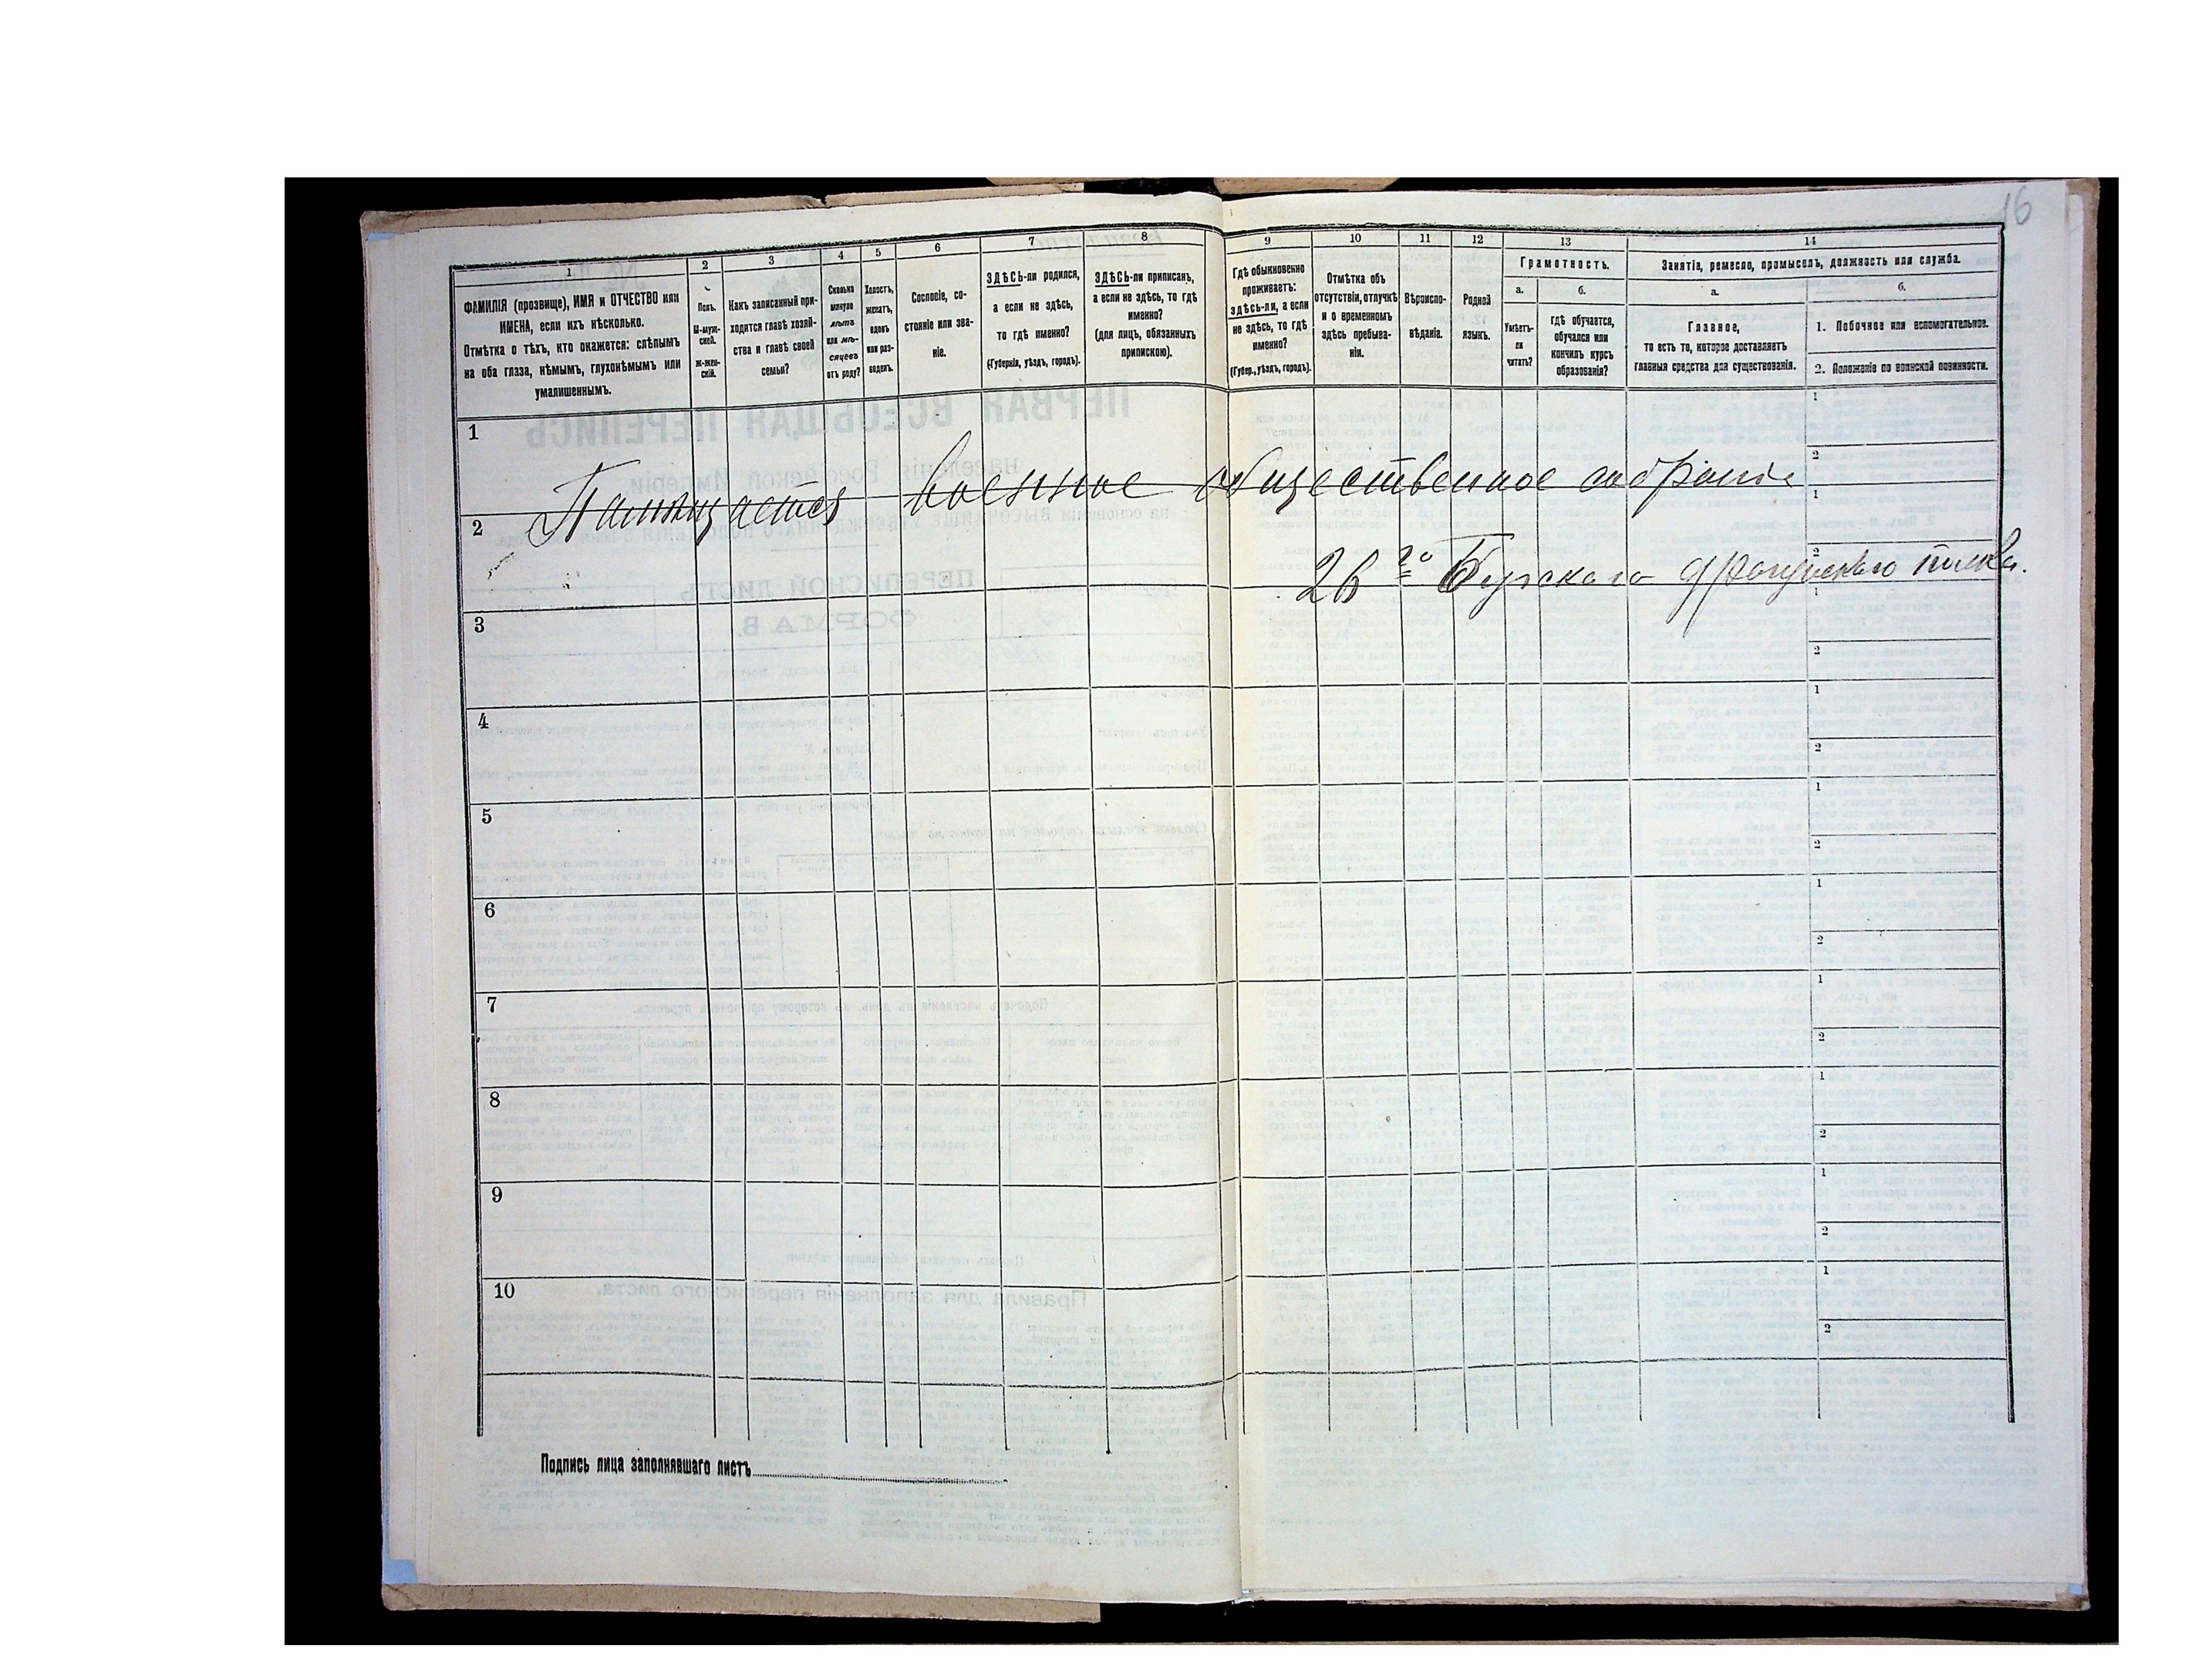 16
1
ФАМИЛІЯ (прозвище), ИМЯ и ОТЧЕСТВО или
ИМЕНА, если ихъ нѣсколько.
Отмѣтка о тѣхъ, кто окажется: слѣпымъ
на оба глаза, нѣмымъ, глухонѣмымъ или
умалишеннымъ.
2
Полъ.
М-муж-
ской.
Ж-жен-
скій.
3
Какъ записанный при-
ходится главѣ хозяй-
ства и главѣ своей
семьи?
4
Сколько
минуло
лѣтъ
или мѣ-
сяцевъ
отъ роду?
5
Холостъ,
женатъ,
вдовъ
или раз-
веденъ.
6
Сословіе, со-
стояніе или зва-
ніе.
7
ЗДѢСЬ-ли родился,
а если не здѣсь,
то гдѣ именно?
(Губернія, уѣздъ, городъ).
8
ЗДѢСЬ-ли приписанъ,
а если не здѣсь, то гдѣ
именно?
(для лицъ, обязанныхъ
припискою).
9
Гдѣ обыкновенно
проживаетъ:
здѣсь-ли, а если
не здѣсь, то гдѣ
именно?
(Губер., уѣздъ, городъ).
10
Отмѣтка объ
отсутствіи, отлучкѣ
и о временномъ
здѣсь пребыва-
ніи.
11
Вѣроиспо-
вѣданіе.
12
Родной
языкъ.
13
Грамотность.
а.
Умѣетъ-
ли
читать?
б.
гдѣ обучается,
обучался или
кончилъ курсъ
образованія?
14
Занятіе, ремесло, промыселъ, должность или служба.
а.
Главное,
то есть то, которое доставляетъ
главныя средства для существованія.
б.
1. Побочное или вспомогательное.
2. Положеніе по воинской повинности.
1
1
2
Помѣщается военное общественное собраніе
2
1
2
26го Бугскаго драгунскаго полка.
3
1
2
4
1
2
5
1
2
6
1
2
7
1
2
8
1
2
9
1
2
10
1
2
Подпись лица заполнявшаго листъ